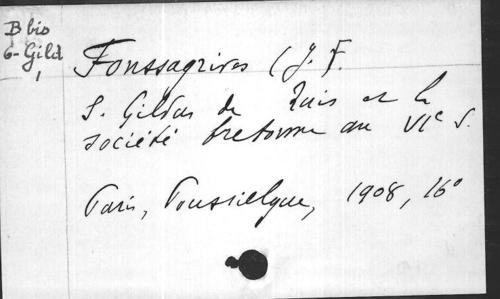 B bio
6-Gild
Fonssagrives (J. F.
S. Gildas de Ruis et la
société bretonne au VIe S.
Paris, Poussielgue, 1908, 16°